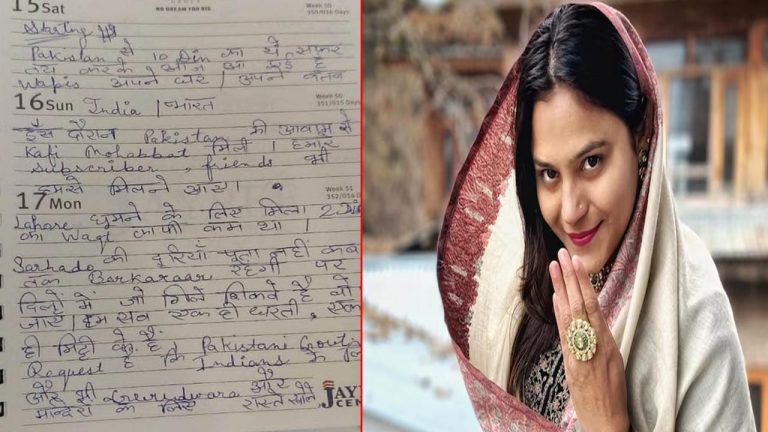 15 Sat
NO DREAM TOO BIG
Week 50
350/016 Days
Starting
Pakistan से 10 Din का ये सफर
तय करके आज आ गई है
Wapis अपने घर । अपने वतन
16 Sun India । भारत
Week 50
351/015 Days
इस दौरान Pakistan की आवाम से
Kafi Mohabbat मिली । हमारे
Subscriber, friends भी
हमसे मिलने आए ।
17 Mon
Week 51
352/014 Days
Lahore घूमने के लिए मिला 2 Din
का Waqt काफी कम था ।
Sarhado की दूरियाँ पता नहीं कब
तक Barkaraar रहेगी पर
दिलों में जो गिले शिकवे है वो
जाए । हम सब एक ही धरती, एक
ही मिट्टी के है ।
Request है कि Pakistani Govt.
Indians के
और भी Gurudwara और
मन्दिरों के लिए रास्ते खोले
JAY
CEN